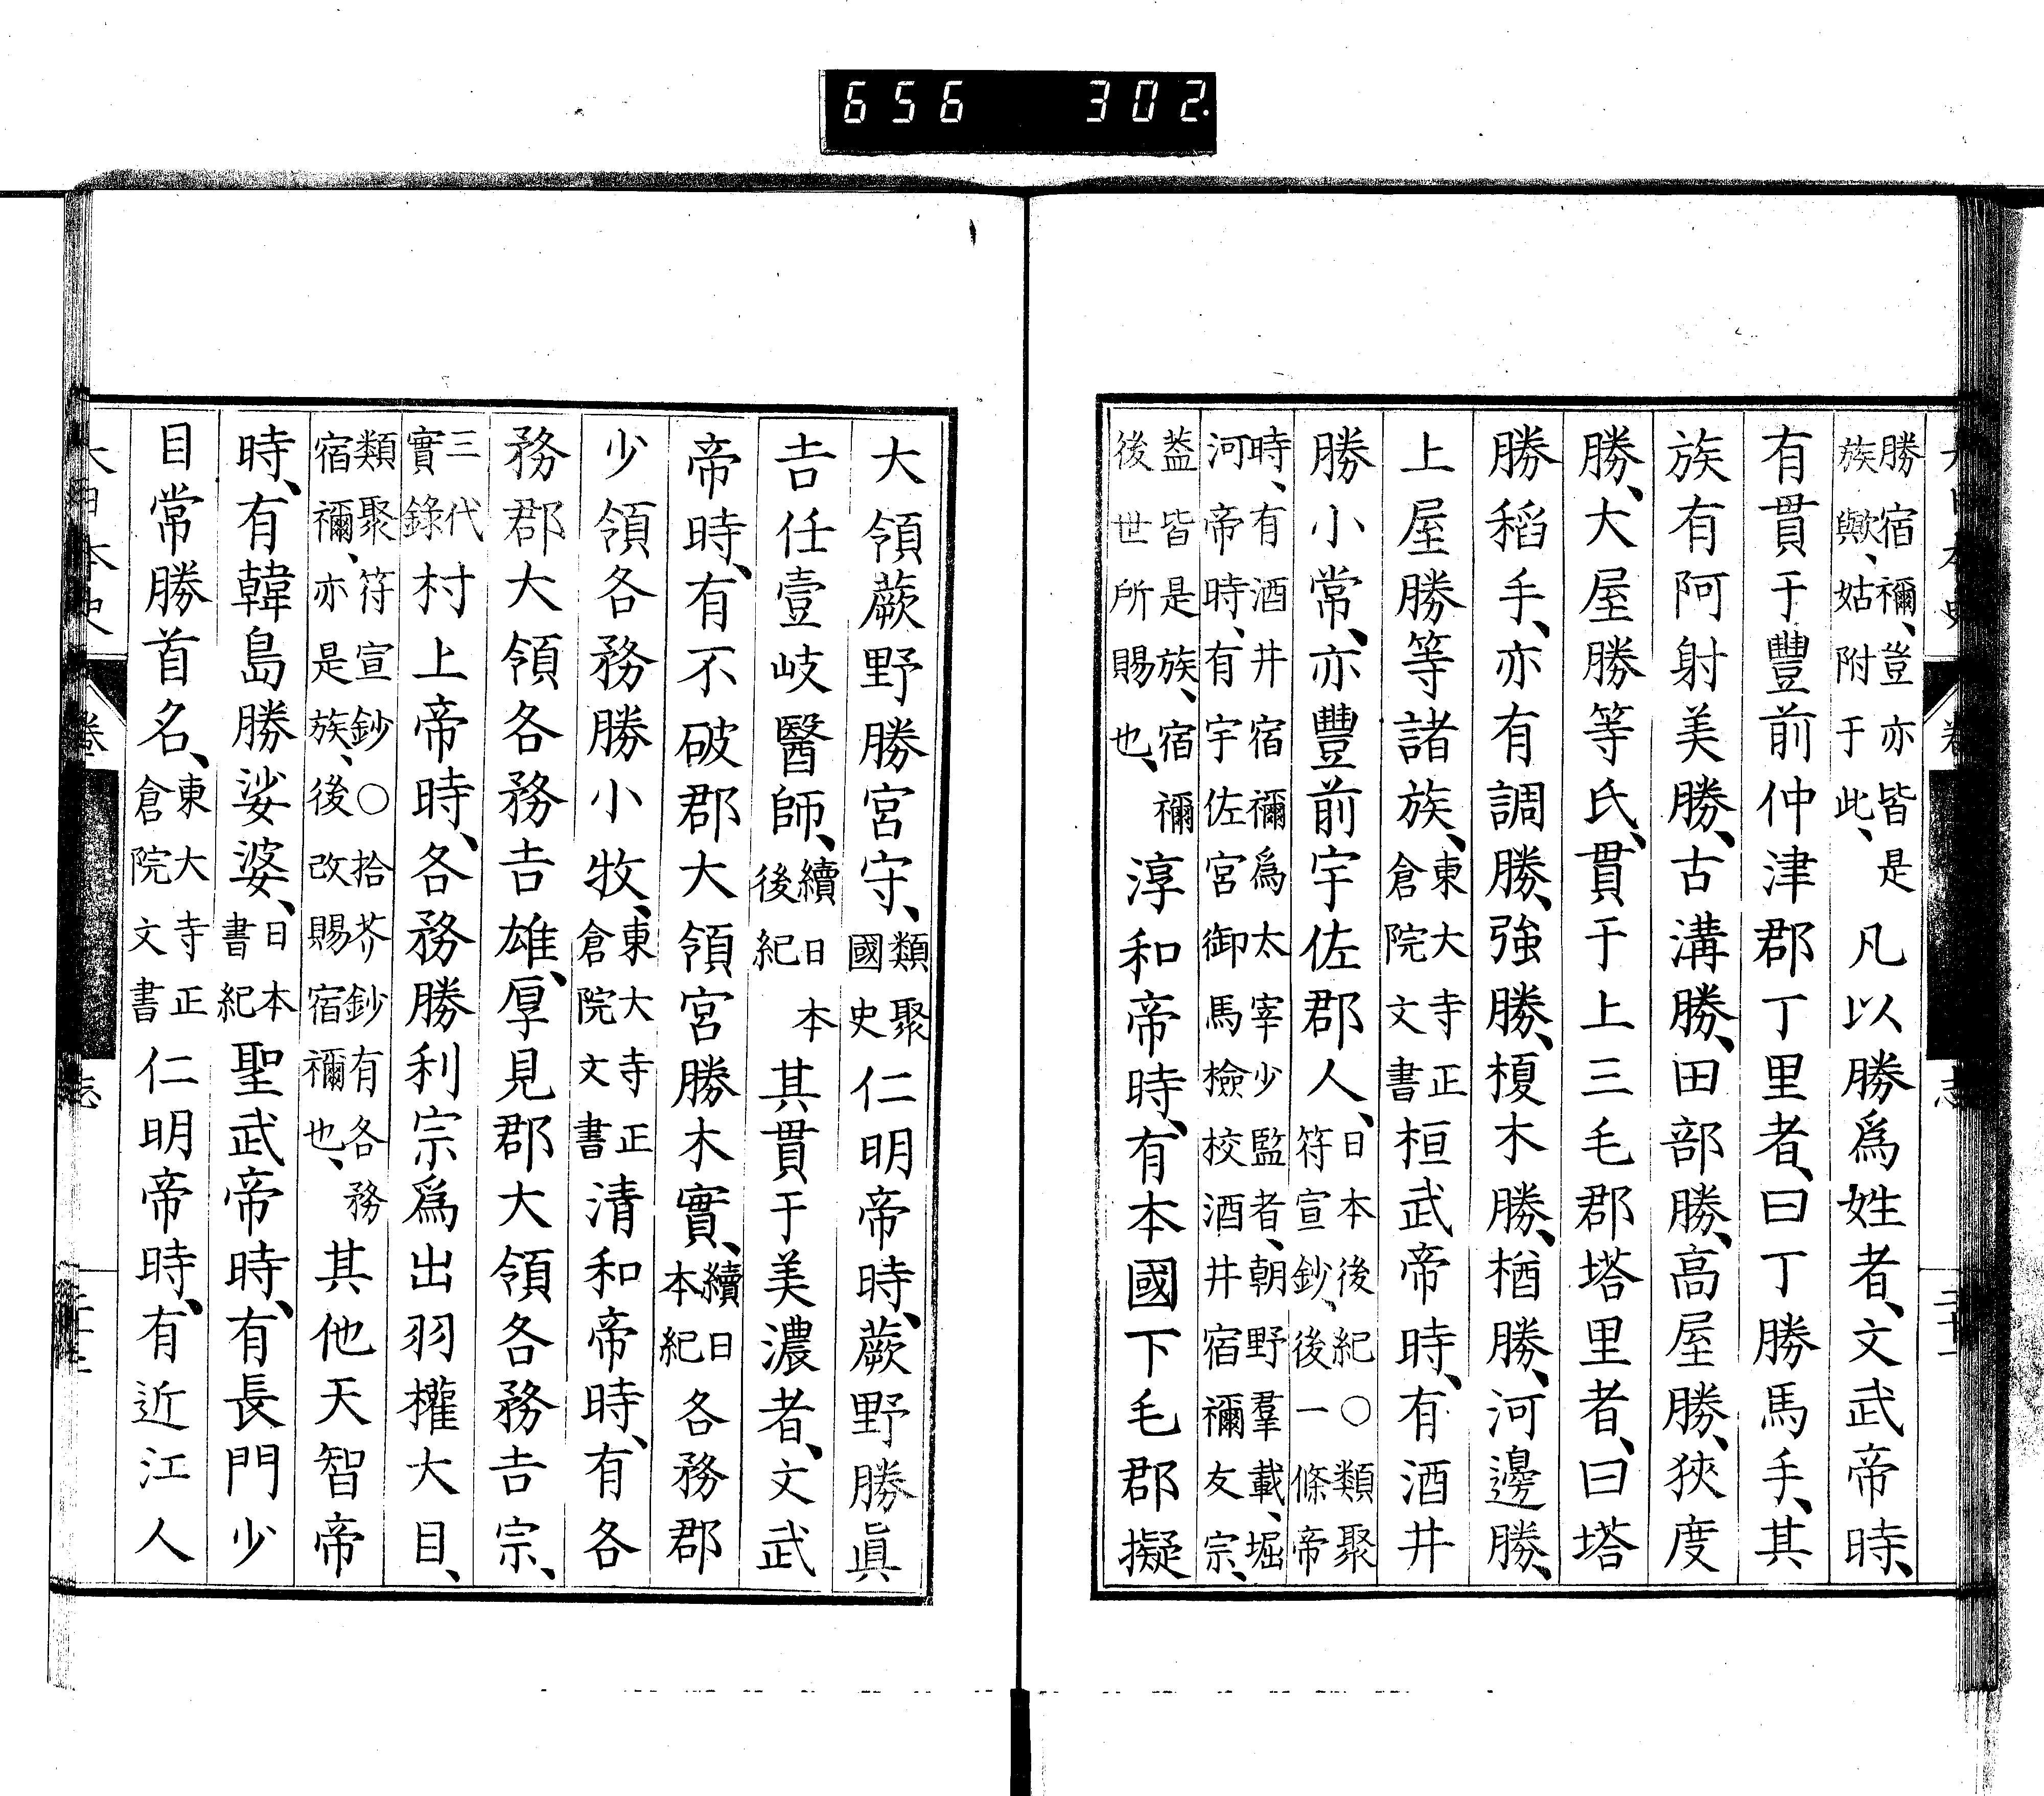 656 302
勝宿禰、豈亦皆是
族歟、姑附于此、
凡以勝爲姓者、文武帝時、
有貫于豐前仲津郡丁里者、曰丁勝馬手、其
族有阿射美勝、古溝勝、田部勝、高屋勝、狹度
勝、大屋勝等氏、貫于上三毛郡塔里者、曰塔
勝稻手、亦有調勝、強勝、榎木勝、楢勝、河邊勝、
上屋勝等諸族、
東大寺正
倉院文書
桓武帝時、有酒井
勝小常、亦豐前宇佐郡人、
日本後紀○類聚
符宣鈔、後一條帝
時、有酒井宿禰爲太宰少監者、朝野羣載、堀
河帝時、有宇佐宮御馬檢校酒井宿禰友宗、
蓋皆是族、宿禰
後世所賜也、
淳和帝時、有本國下毛郡擬
大領蕨野勝宮守、
類聚
國史
仁明帝時、蕨野勝眞
吉任壹岐醫師、
續日本
後紀
其貫于美濃者、文武
帝時、有不破郡大領宮勝木實、
續日
本紀
各務郡
少領各務勝小牧、
東大寺正
倉院文書
清和帝時、有各
務郡大領各務吉雄、厚見郡大領各務吉宗、
三代
實錄
村上帝時、各務勝利宗爲出羽權大目、
類聚符宣鈔○拾芥鈔有各務
宿禰、亦是族、後改賜宿禰也、
其他天智帝
時、有韓島勝娑婆、
日本
書紀
聖武帝時、有長門少
目常勝首名、
東大寺正
倉院文書
仁明帝時、有近江人
大日本史
卷
志